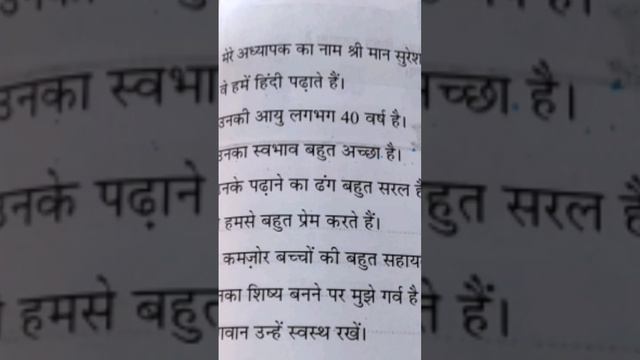 मेरे अध्यापक का नाम श्री मान सुरेश
वे हमें हिंदी पढ़ाते हैं।
उनकी आयु लगभग 40 वर्ष है।
उनका स्वभाव बहुत अच्छा है।
उनके पढ़ाने का ढंग बहुत सरल है
हमसे बहुत प्रेम करते हैं।
कमज़ोर बच्चों की बहुत सहाय
नका शिष्य बनने पर मुझे गर्व है
वान उन्हें स्वस्थ रखें।